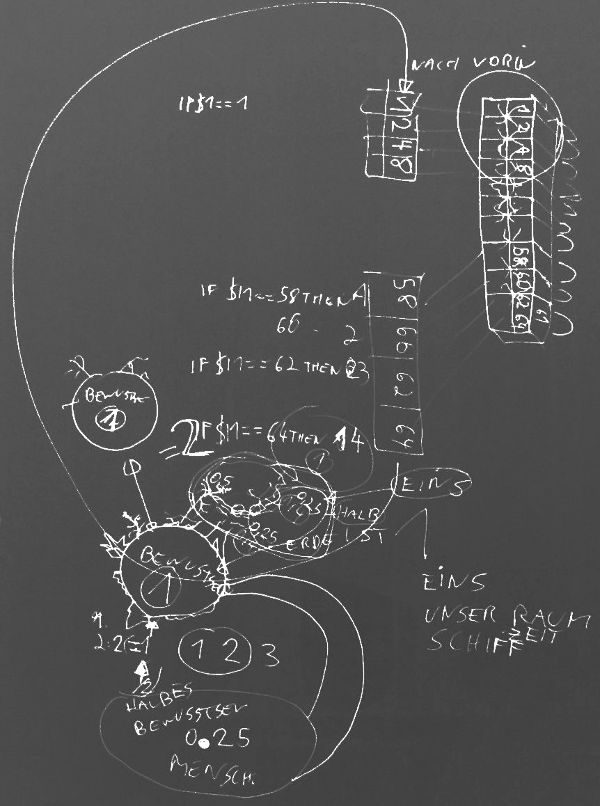 NACH VORN
IF $M==1
1
2
4
8
1
2
4
8
58
60
62
64
61
IF $M==58 THEN 1
60 - 2
IF $M==62 THEN 3
2
IF $M==64 THEN 4
58
60
62
64
BEWUSTSE
1
1
0,5
0,25
0,25
HALB
ERDE
IST
EINS
BEWUSTSE
1
EINS
UNSER RAUM
ZEIT
SCHIFF
1 2 3
2
HALBES
BEWUSSTSEIN
0.25
MENSCH